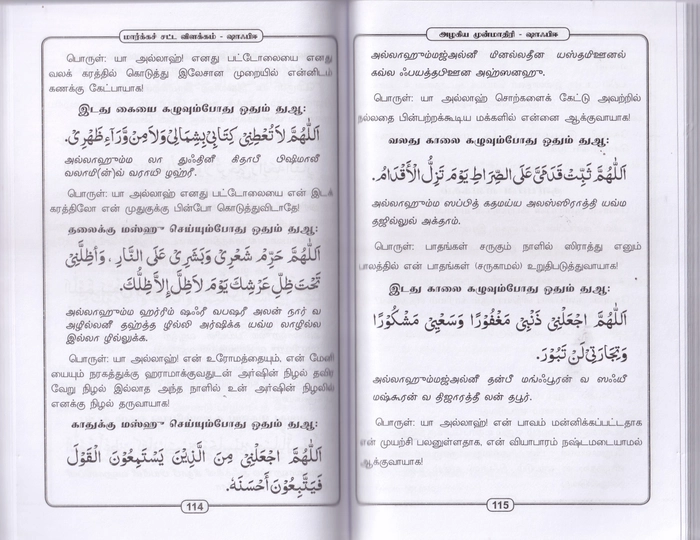 மார்க்கச் சட்ட விளக்கம் - ஷாஃபிஈ
பொருள்: யா அல்லாஹ்! எனது பட்டோலையை எனது
வலக் கரத்தில் கொடுத்து இலேசான முறையில் என்னிடம்
கணக்கு கேட்பாயாக!
இடது கையை கழுவும்போது ஓதும் துஆ:
اَللّٰهُمَّ لَا تُعْطِنِيْ كِتَابِيْ بِشِمَالِيْ وَلَا مِنْ وَّرَآءِ ظَهْرِيْ.
அல்லாஹும்ம லா துஃதினீ கிதாபீ பிஷிமாலீ
வலாமி(ன்)வ் வராயி ழஹ்ரீ.
பொருள்: யா அல்லாஹ் எனது பட்டோலையை என் இடக்
கரத்திலோ என் முதுகுக்கு பின்போ கொடுத்துவிடாதே!
தலைக்கு மஸ்ஹு செய்யும்போது ஓதும் துஆ:
اَللّٰهُمَّ حَرِّمْ شَعْرِيْ وَبَشَرِيْ عَلَى النَّارِ ، وَأَظِلَّنِيْ
تَحْتَ ظِلِّ عَرْشِكَ يَوْمَ لَا ظِلَّ إِلَّا ظِلُّكَ.
அல்லாஹும்ம ஹர்ரிம் ஷஃரீ வபஷரீ அலன் நார் வ
அழில்லனீ தஹ்த்த ழில்லி அர்ஷிக்க யவ்ம லாழில்ல
இல்லா ழில்லுக்க.
பொருள்: யா அல்லாஹ்! என் உரோமத்தையும், என் மேனி
யையும் நரகத்துக்கு ஹராமாக்குவதுடன் அர்ஷின் நிழல் தவிர
வேறு நிழல் இல்லாத அந்த நாளில் உன் அர்ஷின் நிழலில்
எனக்கு நிழல் தருவாயாக!
காதுக்கு மஸ்ஹு செய்யும்போது ஓதும் துஆ:
اَللّٰهُمَّ اجْعَلْنِيْ مِنَ الَّذِيْنَ يَسْتَمِعُوْنَ الْقَوْلَ
فَيَتَّبِعُوْنَ أَحْسَنَهٗ.
114
அழகிய முன்மாதிரி - ஷாஃபிஈ
அல்லாஹும்மஜ்அல்னீ மினல்லதீன யஸ்தமிஊனல்
கவ்ல ஃபயத்தபிஊன அஹ்ஸனஹு.
பொருள்: யா அல்லாஹ் சொற்களைக் கேட்டு அவற்றில்
நல்லதை பின்பற்றக்கூடிய மக்களில் என்னை ஆக்குவாயாக!
வலது காலை கழுவும்போது ஓதும் துஆ:
اَللّٰهُمَّ ثَبِّتْ قَدَمَيَّ عَلَى الصِّرَاطِ يَوْمَ تَزِلُّ الْأَقْدَامُ.
அல்லாஹும்ம ஸப்பித் கதமய்ய அலஸ்ஸிராத்தி யவ்ம
தஜில்லுல் அக்தாம்.
பொருள்: பாதங்கள் சருகும் நாளில் ஸிராத்து எனும்
பாலத்தில் என் பாதங்கள் (சருகாமல்) உறுதிபடுத்துவாயாக!
இடது காலை கழுவும்போது ஓதும் துஆ:
اَللّٰهُمَّ اجْعَلْنِيْ ذَنْبِيْ مَغْفُوْرًا وَسَعْيِيْ مَشْكُوْرًا
وَتِجَارَتِيْ لَنْ تَبُوْرَ.
அல்லாஹும்மஜ்அல்னீ தன்பீ மங்ஃபூரன் வ ஸஃயீ
மஷ்கூரன் வ திஜாரத்தீ லன் தபூர்.
பொருள்: யா அல்லாஹ்! என் பாவம் மன்னிக்கப்பட்டதாக
என் முயற்சி பலனுள்ளதாக, என் வியாபாரம் நஷ்டமடையாமல்
ஆக்குவாயாக!
115